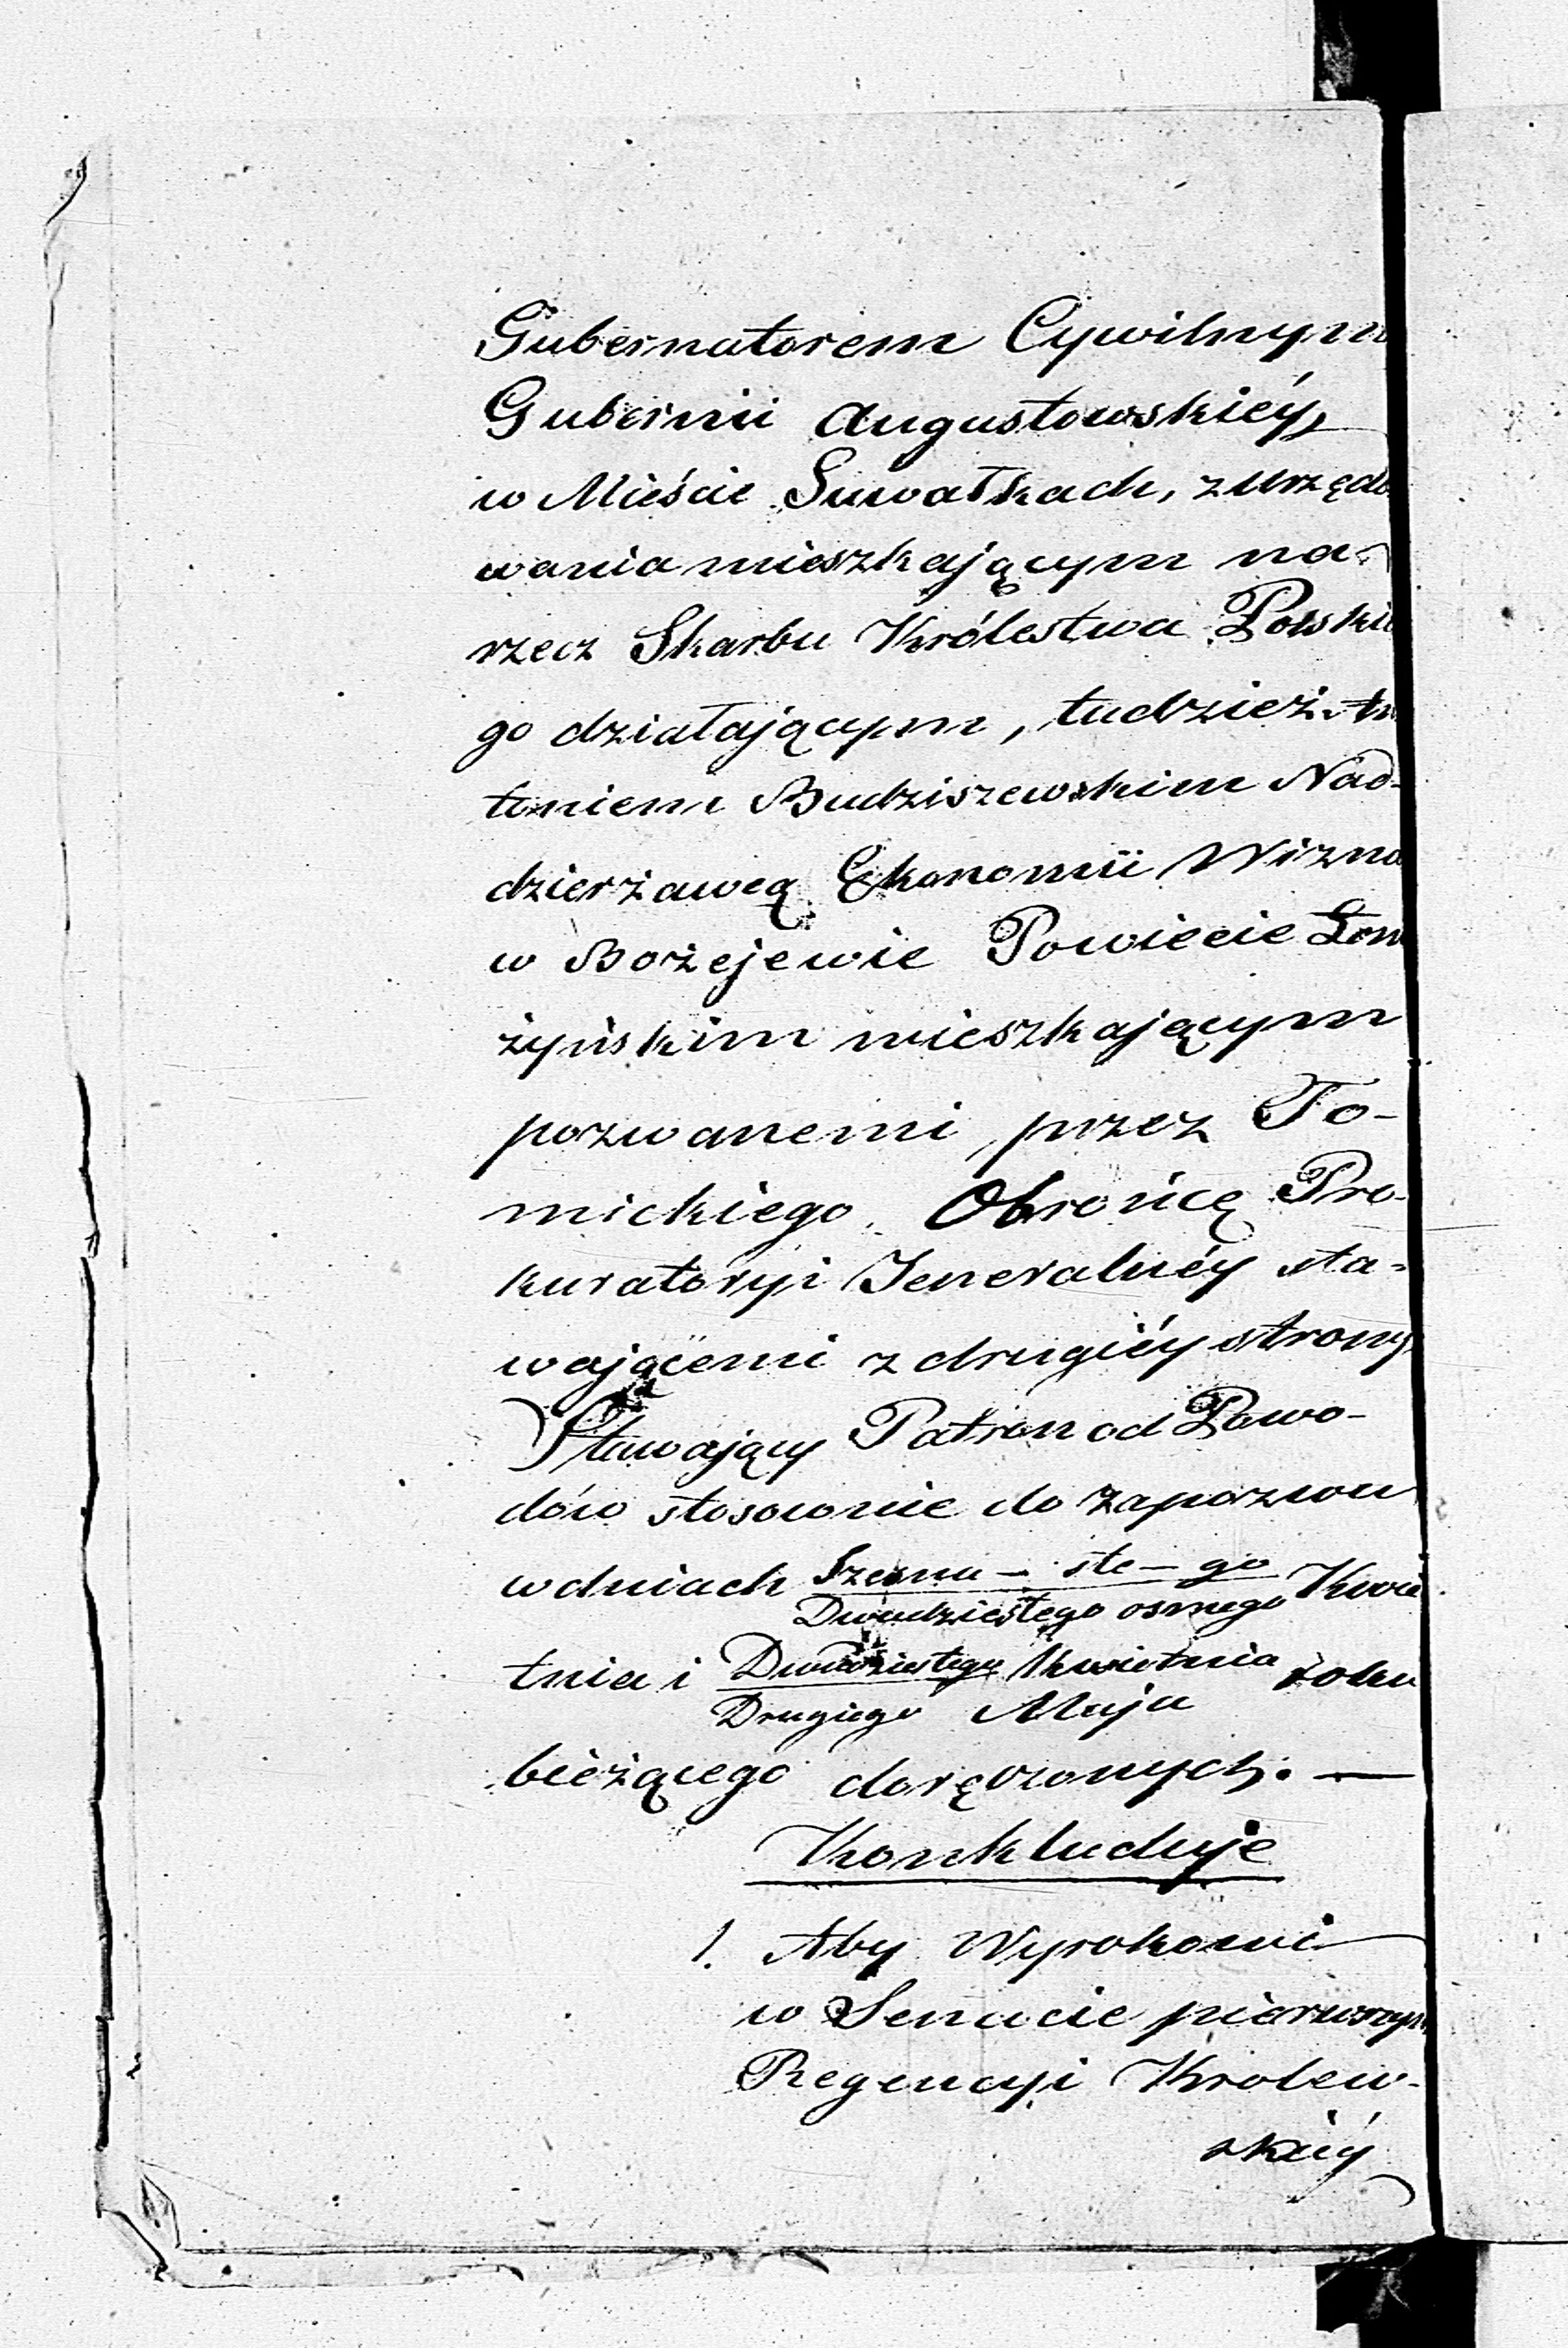 Gubernatorem Cywilnym
Gubernii Augustowskiéy,
w Mieście Suwałkach, z urzędo
wania mieszkającym na
rzecz Skarbu Królestwa Polskie
go działającym, tudzież An
toniem Budziszewskim Nad-
dzierżawcą Ekonomii Wizna
w Bożejewie Powiecie Łom
żyńskim mieszkającym
pozwanemi, przez To-
mickiego Obrońcę Pro-
kuratoryi Jeneralnéy sta-
wającemi z drugiéy strony
Stawający Patron od Powo-
dów stosownie do zapozwu
w dniach Szesna - ste - go Kwie
Dwudziestego osmego
tnia i Dwudziestego Kwietnia roku
Drugiego Maja
bieżącego doręczonych. —
Konkluduje
1. Aby Wyrokowi
w Senacie pierwszym
Regencyi Krolew-
skiéy